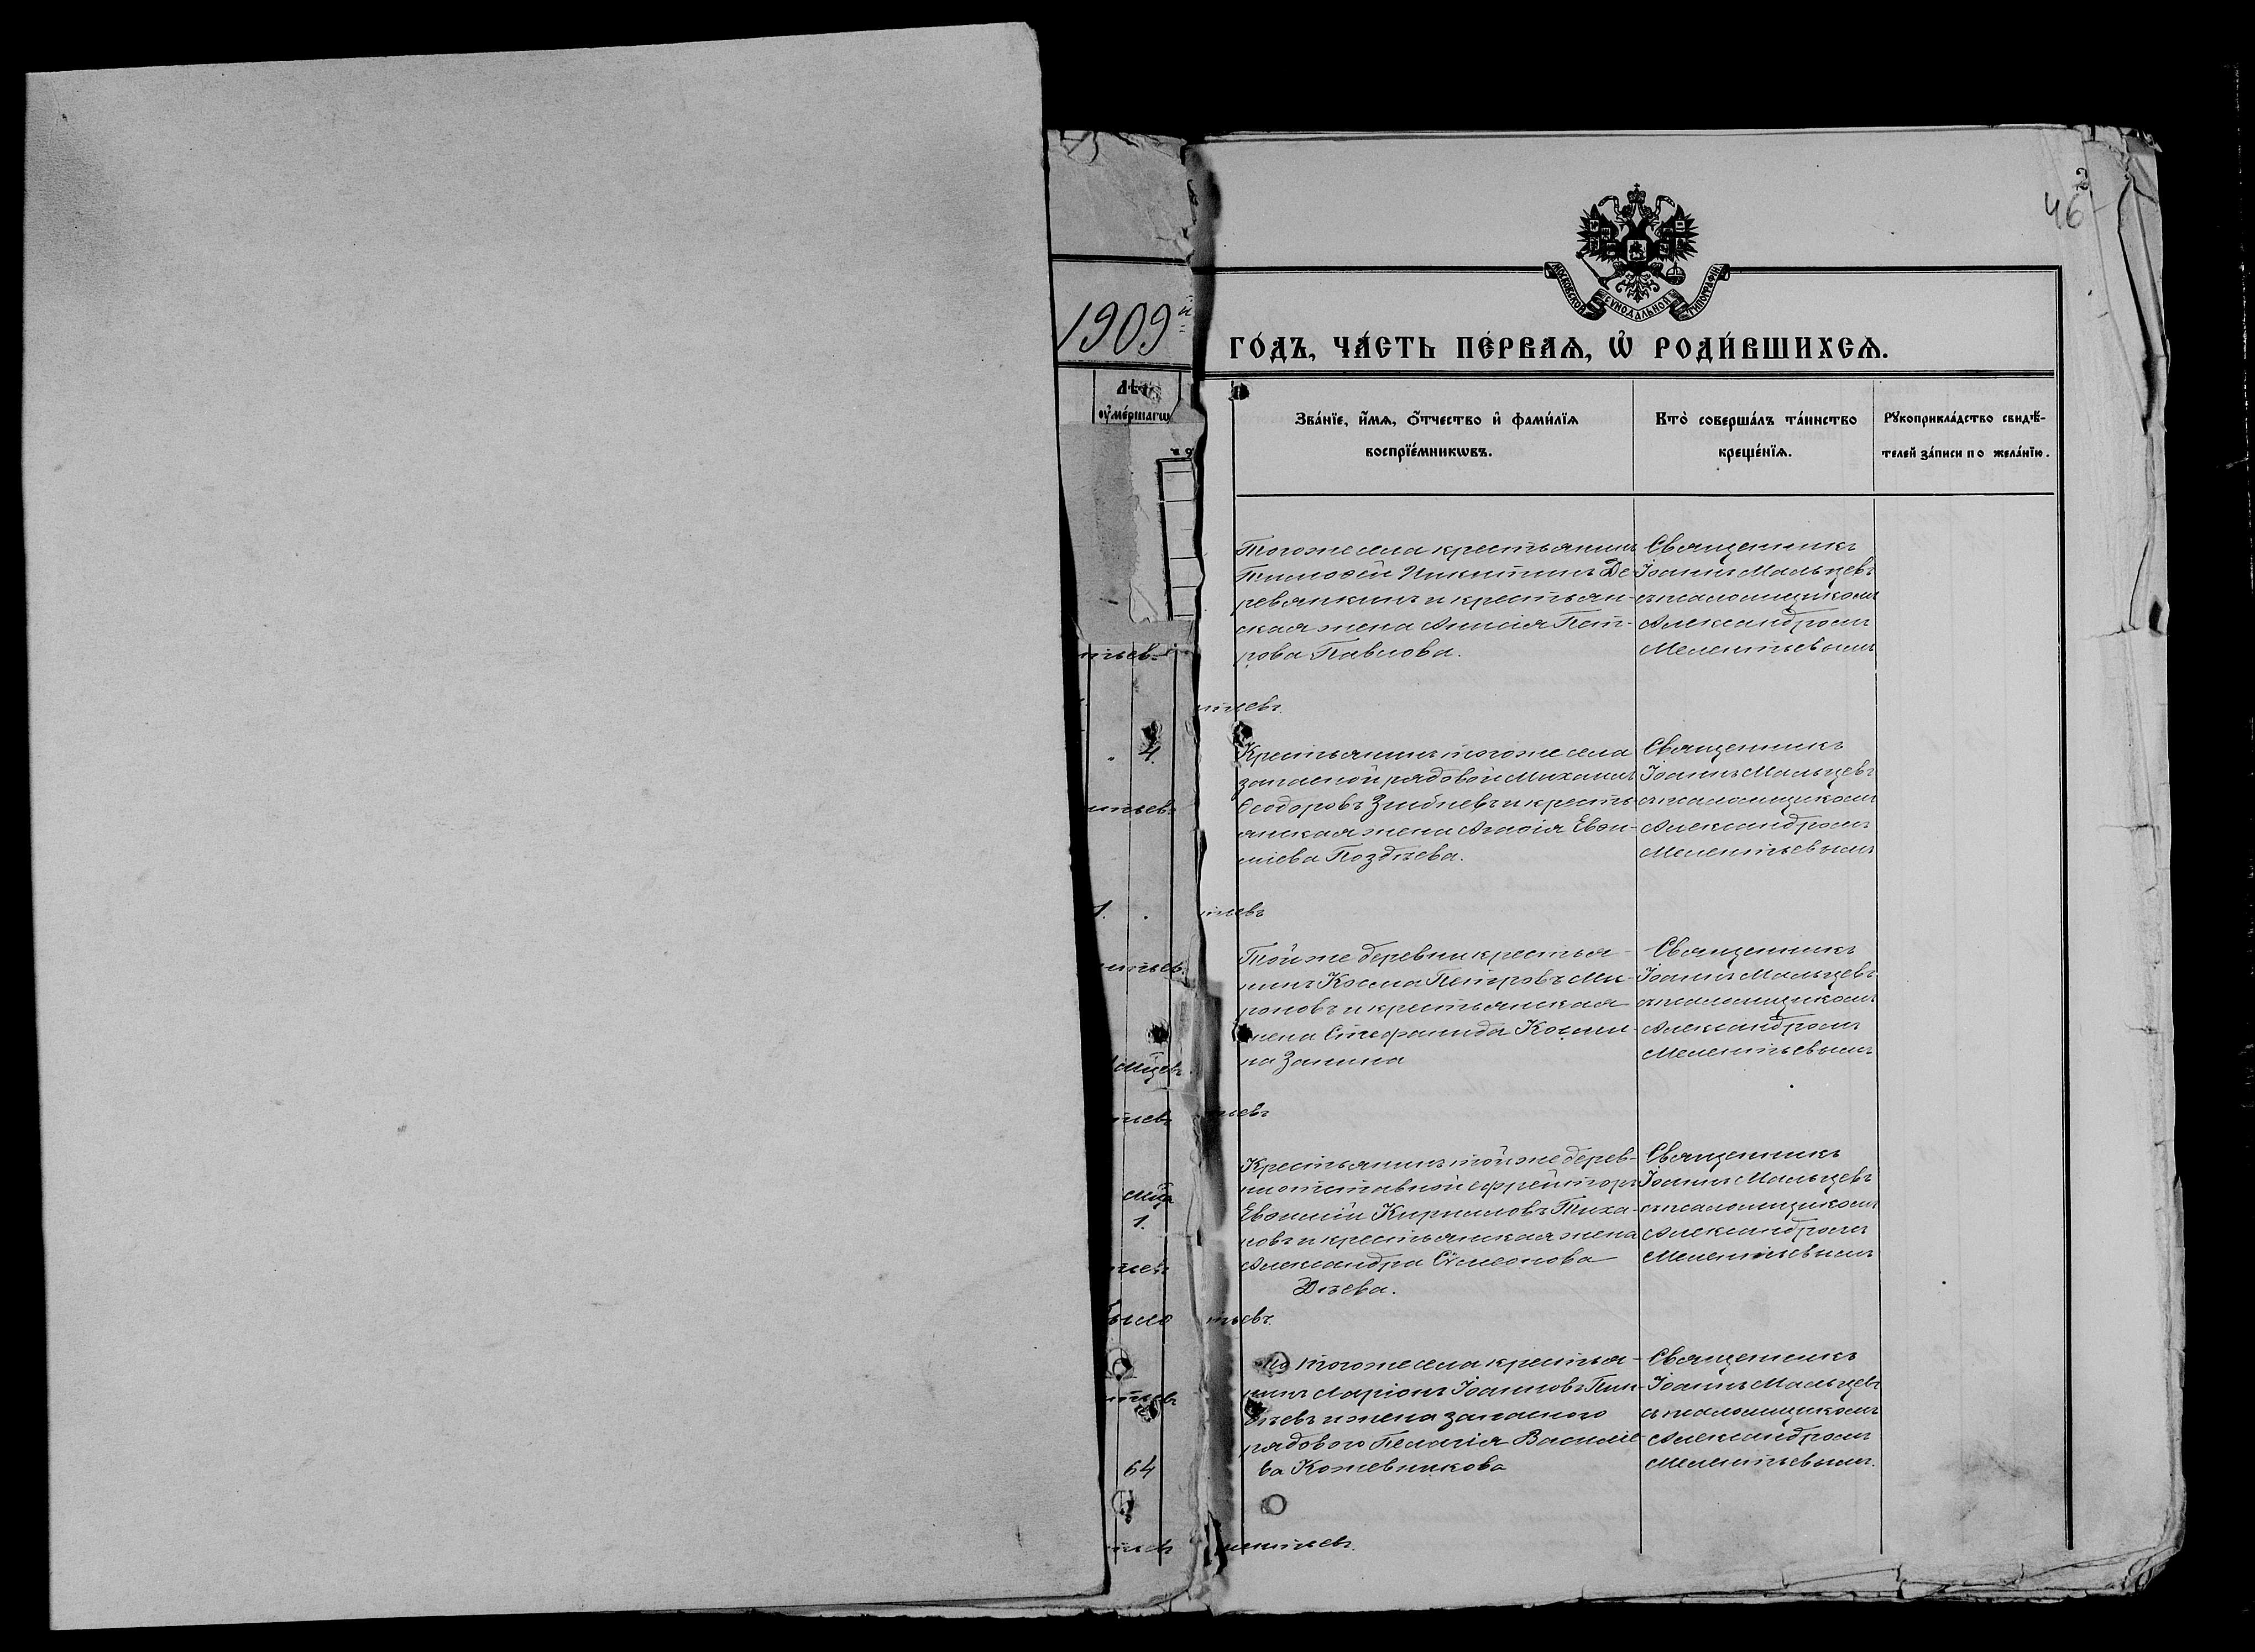 46
2
МОСКОВСКОЙ СѴНОДАЛЬНОЙ ТИПОГРАФІИ
1909й
ГО́ДЪ, ЧА́СТЬ ПЕ́РВАѦ, Ѡ҆ РОДИ́ВШИХСѦ.
Лѣта
оу҆ме́ршагѡ
Зва́нїе, и҆́мѧ, ѻ҆́тчество и҆ фами́лїѧ
воспрїе́мникѡвъ.
Кто̀ соверша́лъ та́инство
креще́нїѧ.
Рꙋкоприкла́дство свидѣ́-
телей за́писи по жела́нїю.
Тогоже села крестьянинъ
Тимоѳей Никитинъ Де-
ревянкинъ и крестьян-
ская жена Анисія Пет-
рова Павлова.
Священникъ
Іоаннъ Мальцевъ
съ псаломщикомъ
Александромъ
Мелентьевымъ
тьевъ
тьевъ.
4.
Крестьянинъ тогоже села
запасной рядовой Михаилъ
Ѳеодоровъ и кресть-
янская жена Агаѳія Евѳи-
міева Позднева.
Священникъ
Іоаннъ Мальцевъ
съ псаломщикомъ
Александромъ
Мелентьевымъ
нтьевъ
1.
тьевъ
Той же деревни крестья-
нинъ Косма Петровъ Ми-
роновъ и крестьянская
жена Стефанида Косми-
на Занина
Священникъ
Іоаннъ Мальцевъ
съ псаломщикомъ
Александромъ
Мелентьевымъ
нтьевъ
тьевъ
тьевъ
Крестьянинъ той же дерев-
ни отставной ефрейторъ
Евѳимій Кирилловъ Тиха-
новъ и крестьянская жена
Александра Сѵмеонова
Священникъ
Іоаннъ Мальцевъ
съ псаломщикомъ
Александромъ
Мелентьевымъ
1.
тьевъ
тьевъ.
тогоже села крестья-
нинъ Ларіонъ Іоанновъ
и жена запасного
рядового Пелагія Василіе-
ва Кожевникова
Священникъ
Іоаннъ Мальцевъ
съ псаломщикомъ
Александромъ
Мелентьевымъ.
нтьевъ
64
тьевъ
лентьевъ.